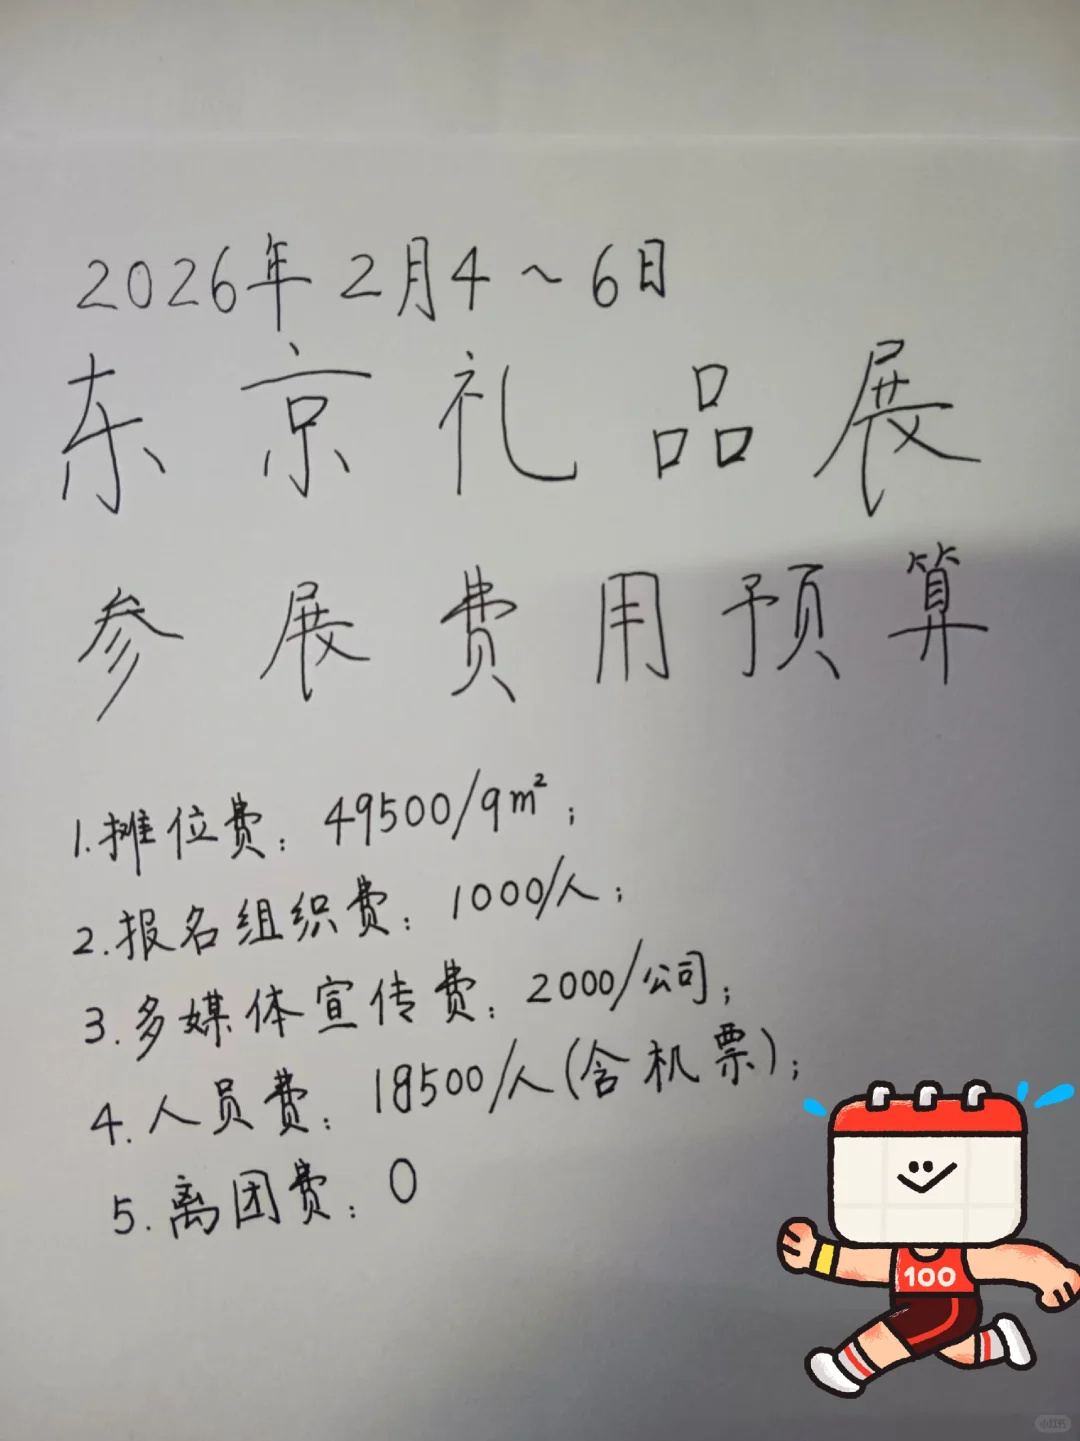 2026年2月4~6日
东京礼品展
参展费用预算
1.摊位费：49500/9m²；
2.报名组织费：1000/人；
3.多媒体宣传费：2000/公司；
4.人员费：18500/人(含机票)；
5.离团费：0
100
小红书